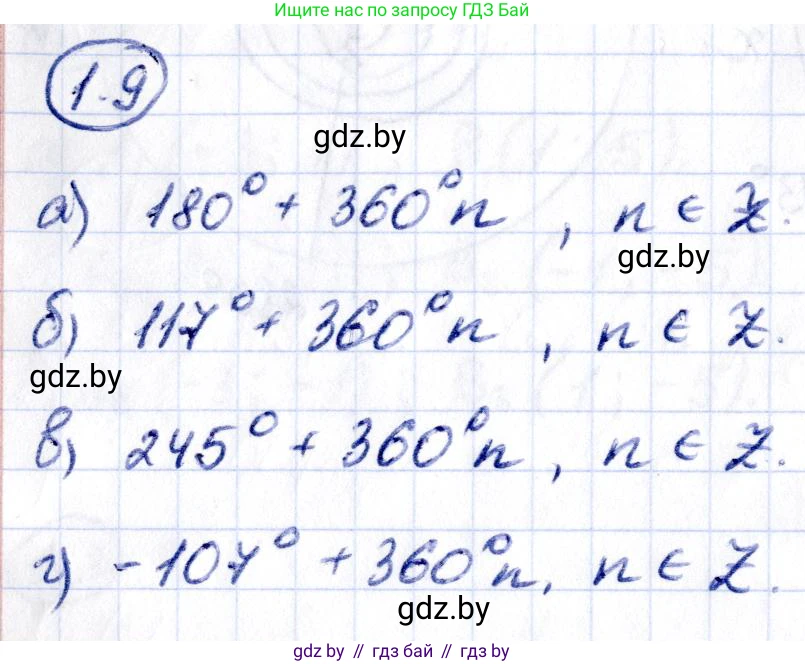 Ищите нас по запросу ГДЗ Бай
1.9
gdz.by
а) 180° + 360°n , n ∈ Z.
gdz.by
б) 117° + 360°n , n ∈ Z.
gdz.by
в) 245° + 360°n , n ∈ Z.
г) -107° + 360°n, n ∈ Z.
gdz.by
gdz by // гдз бай // gdz by